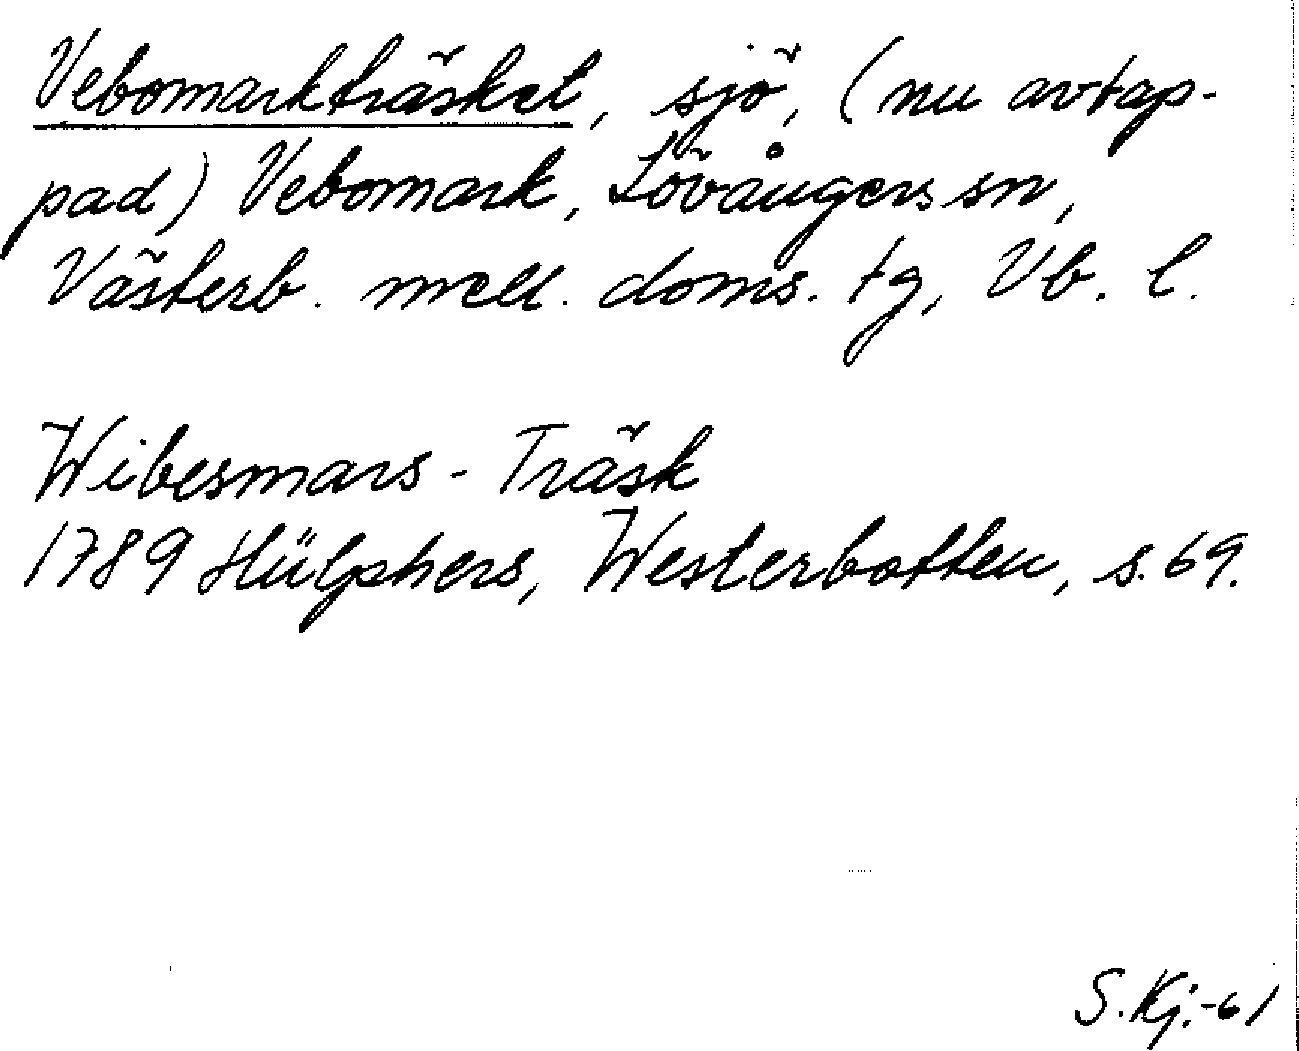 Vebomarkträsket, sjö, (nu avtap-
pad) Vebomark, Lövångers sn,
Västerb. mell. doms. tg, Vb. l.
Wibesmars-Träsk
1789 Hülphers, Westerbotten, s. 69.
S. Kj. -61